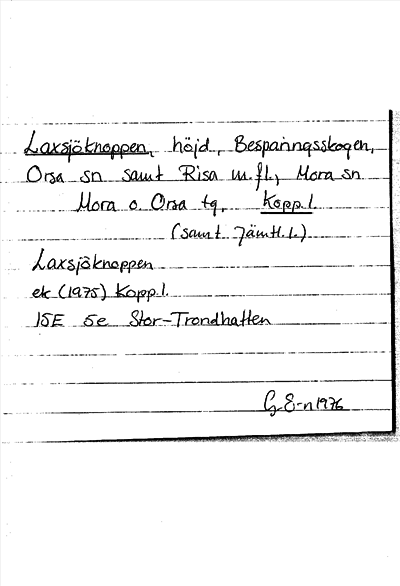 Laxsjöknoppen, höjd, Besparingsskogen,
Orsa sn samt Risa m.fl., Mora sn
Mora o. Orsa tg, Kopp.l.
(samt Jämtl.l.)
Laxsjöknoppen
ek (1975) Kopp.l.
15E 5e Stor-Trondhatten
G E-n 1976